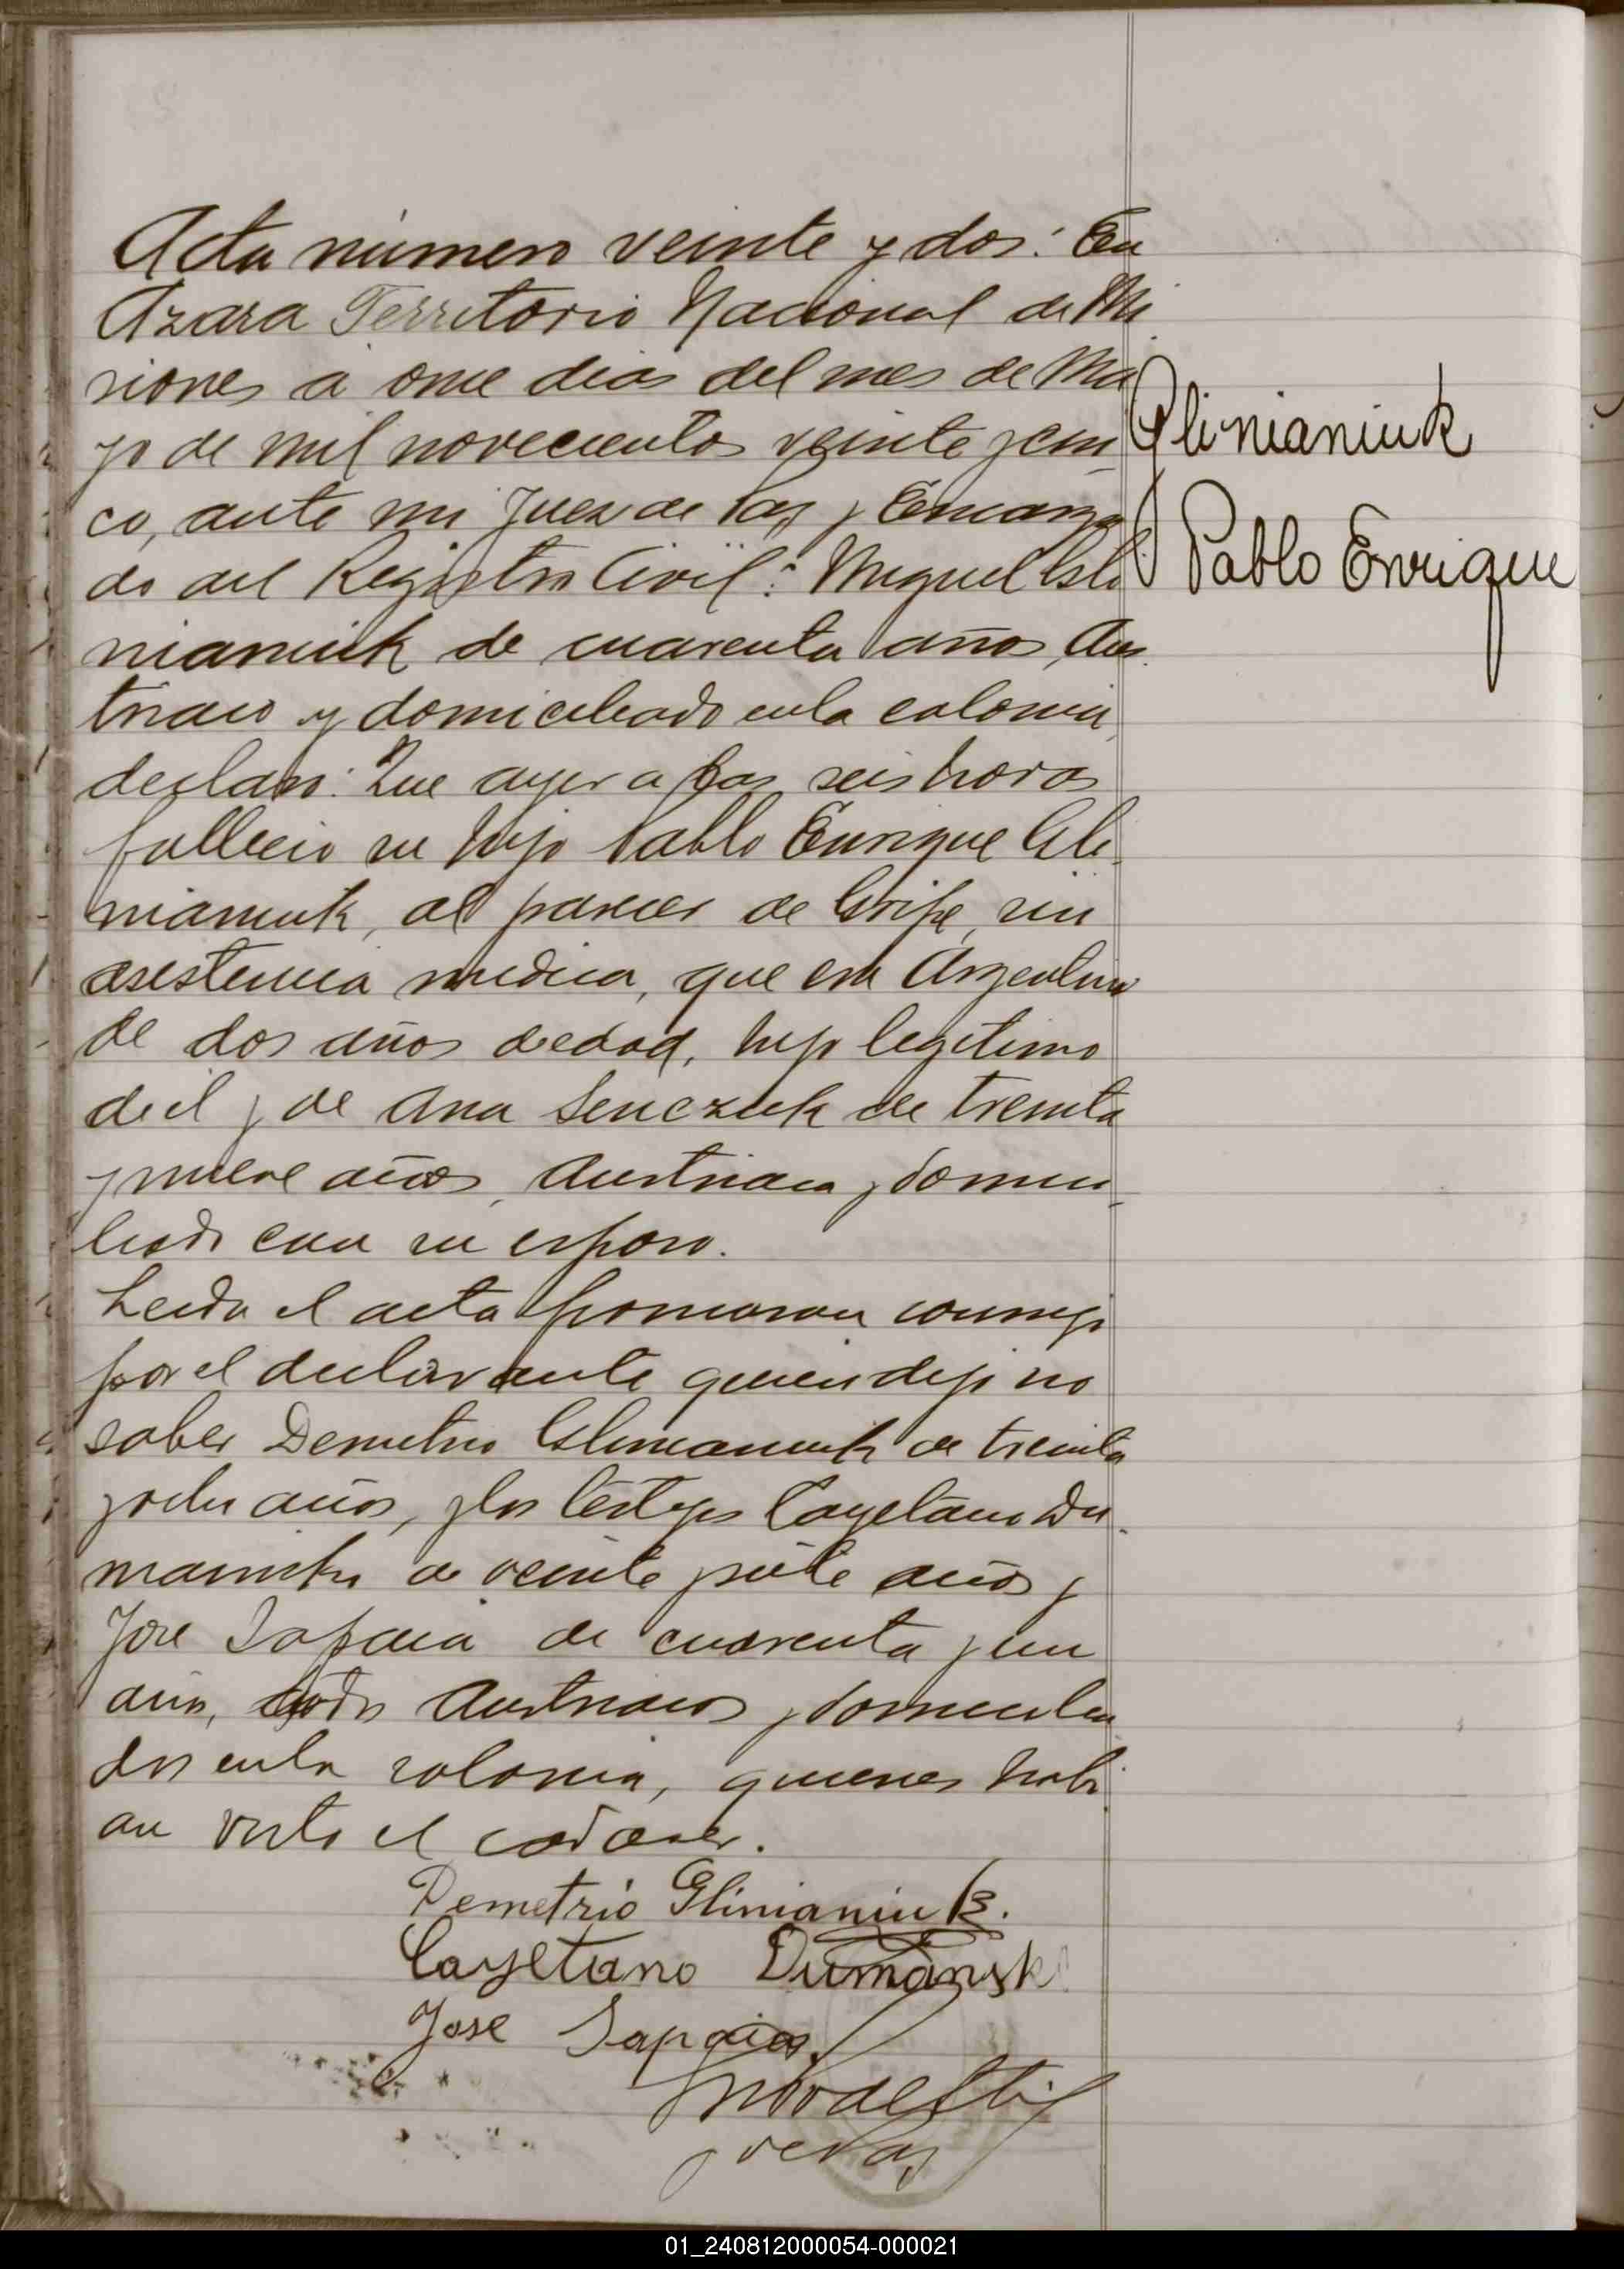 Acta número veinte y dos: En
Azara Territorio Nacional de Mi
siones a once dias del mes de Ma
yo de mil novecientos veinte y cin
co, ante mi Juez de Paz y Encarga
do del Registro Civil: Miguel Gli
nianiuk de cuarenta años, Aus
triaco y domiciliado en la colonia
declaró: Que ayer a las seis horas
fallecio su hijo Pablo Enrique Gli
nianiuk, al parecer de Gripe, sin
asistencia medica, que era Argentino
de dos años de edad, hijo legitimo
de él y de Ana Senczuk de treinta
y nueve años, Austriaca y domici
liada con su esposo.
Leida el acta firmaron conmigo
por el declarante quien dijo no
saber Demetrio Glinianiuk de treinta
y ocho años, y los testigos Cayetano Du
manski de veinte y siete años y
Jose Sapaia de cuarenta y un
año, todos Austriacos y domicilia
dos en la colonia, quienes habi
an visto el cadaver.
Demetrio Glinianiuk.
Cayetano Dumansk
Jose Sapaia
Juez Paz
Glinianiuk
Pablo Enrique
01_240812000054-000021